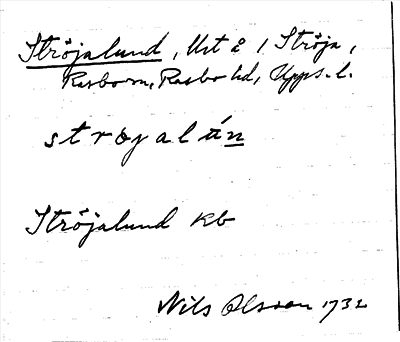 Ströjalund, Ust å / Ströja,
Rasbo sn, Rasbo hd, Upps. l.
strøjalún
Ströjalund kb
Nils Olsson 1732